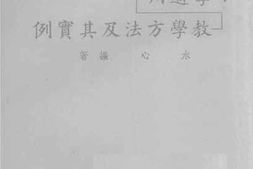 教學方法及其實例
水心著